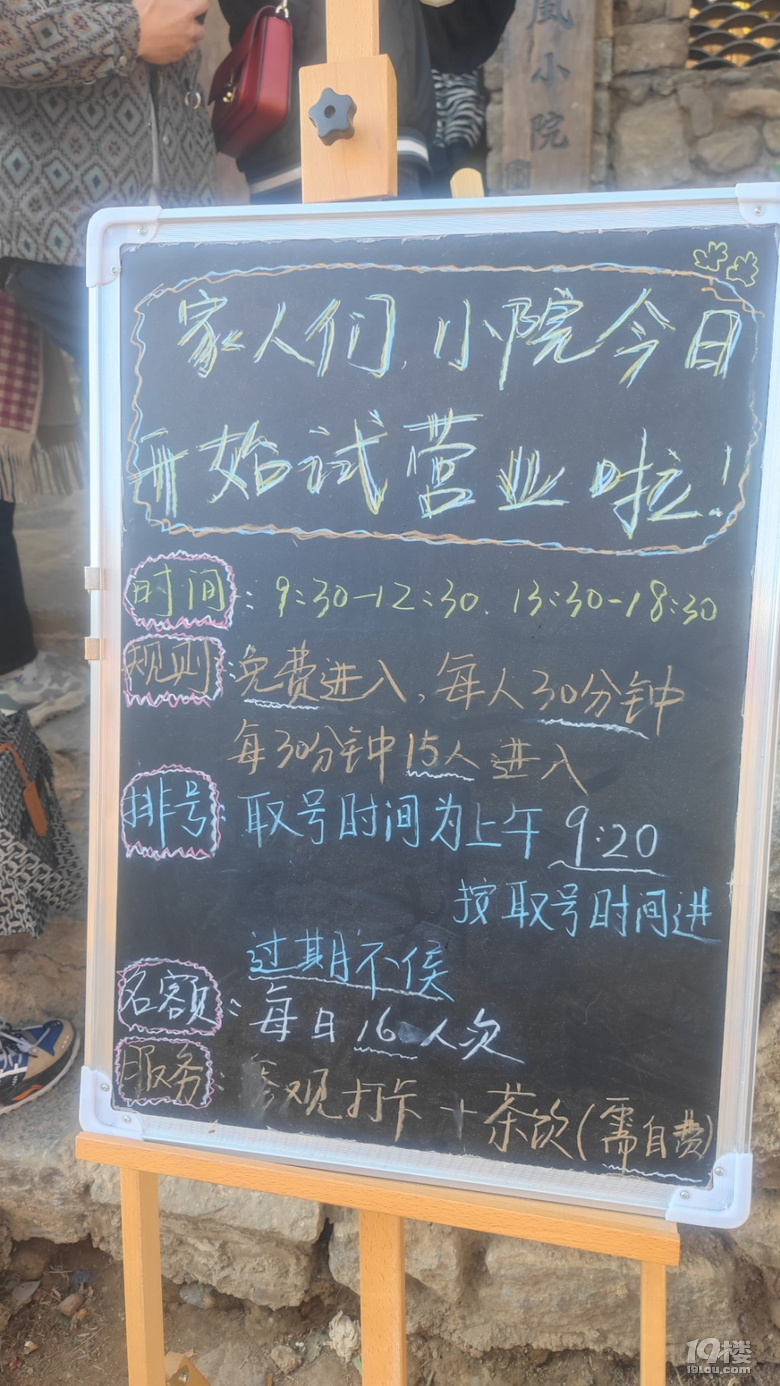 風小院
家人们,小院今日
开始试营业啦!
时间:9:30-12:30.13:30-18:30
规则:免费进入,每人30分钟
每30分钟15人进入
排号:取号时间为上午9:20
按取号时间进
过期不侯
名额:每日16 人次
服务:参观打卡+茶饮(需自费)
19楼
19lou.com